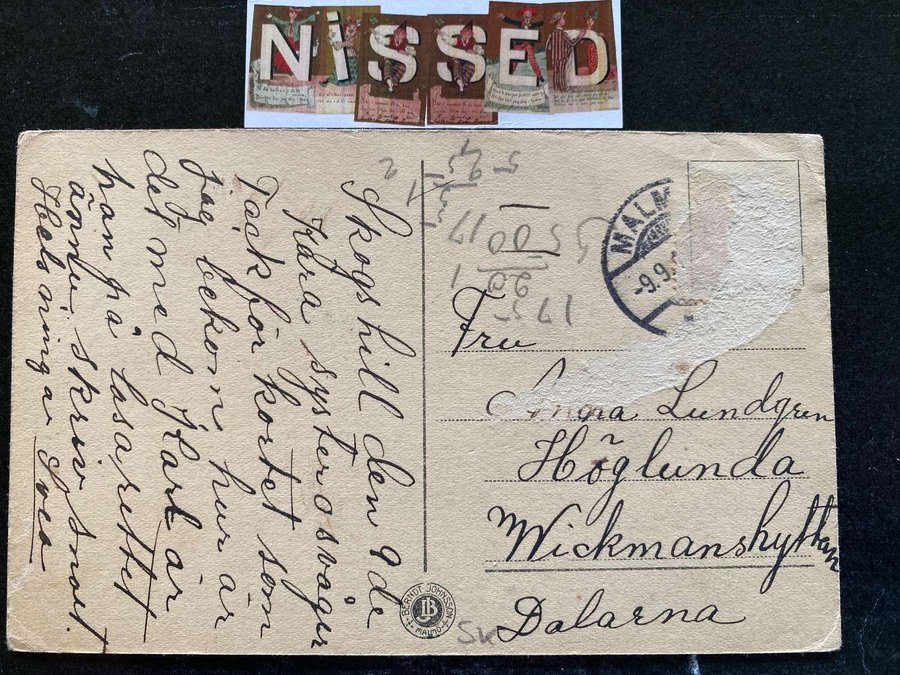 NiSSED
Skogshill den 9 de
Kära syster o svåger
Tack för kortet som
jag bekom hur är
det med Karl är
han på lasarettet
ännu skriv snart.
Helsningar Svea
MALM
-9.9.
Fru
Anna Lundgren
Höglunda
Wickmanshyttan
Dalarna
BERNDT JOHNSSON
JB
MALMÖ